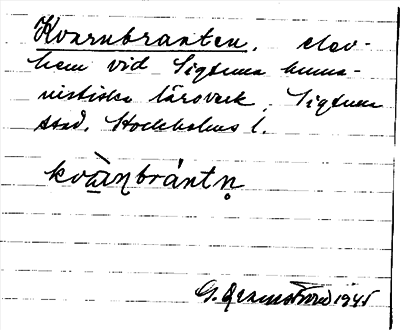 Kvarnbranten, elev-
hem vid Sigtuna huma-
nistiska läroverk, Sigtuna
stad, Stockholms l.
kvàɳbrántn̥
G. 1945